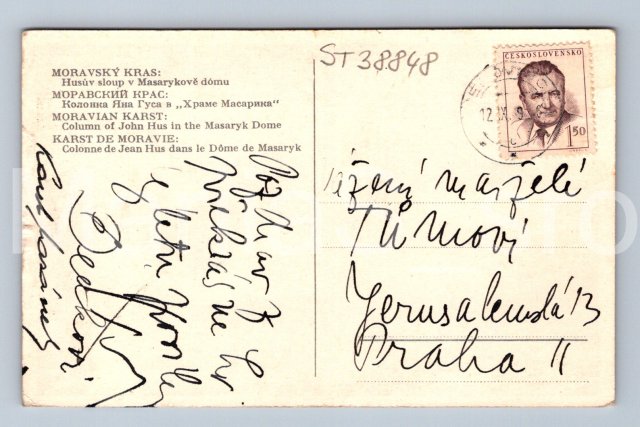 ST 38848
MORAVSKÝ KRAS:
Husův sloup v Masarykově dómu
МОРАВСКИЙ КРАС:
Колонка Яна Гуса в „Храме Масарика"
MORAVIAN KARST:
Column of John Hus in the Masaryk Dome
KARST DE MORAVIE:
Colonne de Jean Hus dans le Dôme de Masaryk
ČESKOSLOVENSKO
1.50
12 IX
Pozdrav z
letní
Vážení manželé
Tůmovi
Jerusalemská 13
Praha II